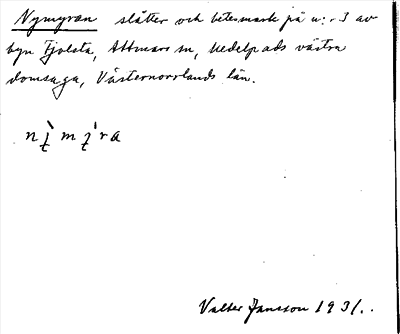 Nymyran slåtter och betesmark på n:r 3 av
byn Fjolsta, Attmars sn, Medelpads västra
domsaga, Västernorrlands län.
Valter Jansson 1931.